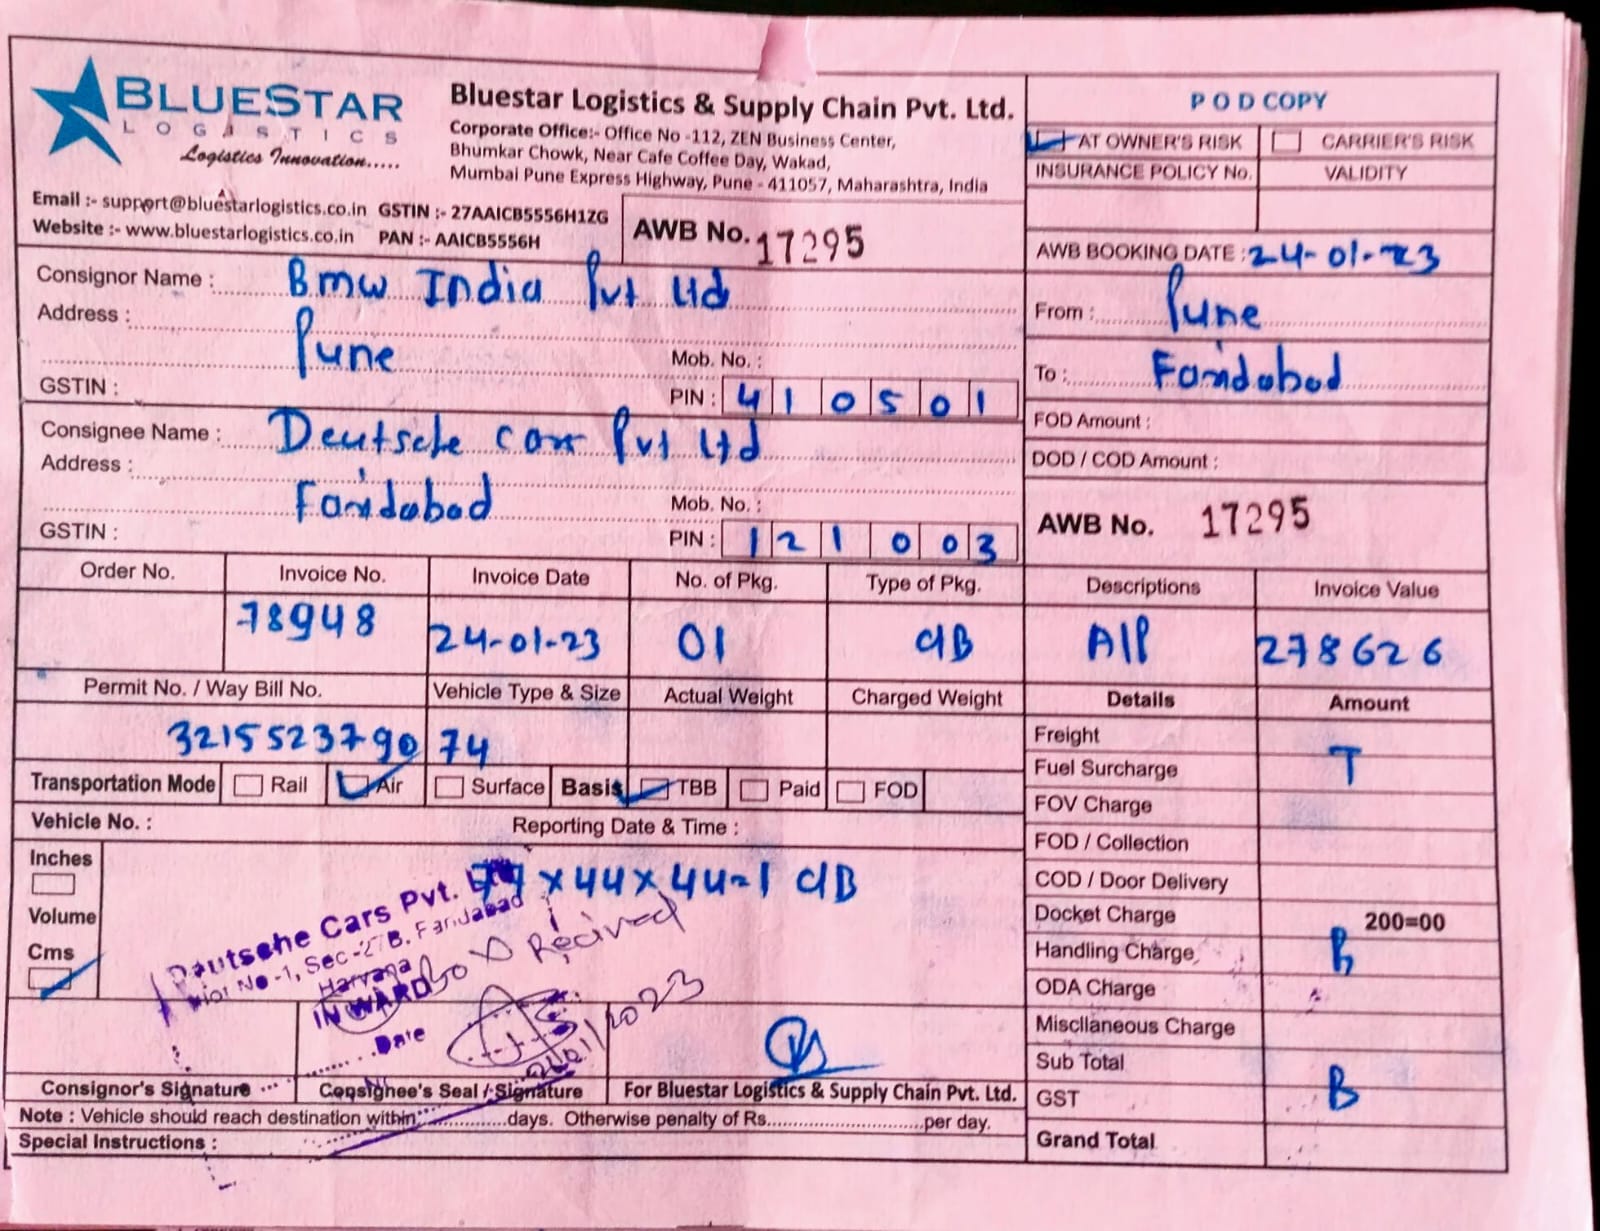 BLUESTAR
LOGISTICS
Logistics Innovation.....
Bluestar Logistics & Supply Chain Pvt. Ltd.
Corporate Office:- Office No -112, ZEN Business Center,
Bhumkar Chowk, Near Cafe Coffee Day, Wakad,
Mumbai Pune Express Highway, Pune - 411057, Maharashtra, India
Email :- support@bluestarlogistics.co.in GSTIN :- 27AAICB5556H1ZG
Website :- www.bluestarlogistics.co.in PAN :- AAICB5556H
AWB No. 17295
POD COPY
AT OWNER'S RISK CARRIER'S RISK
INSURANCE POLICY No. VALIDITY
AWB BOOKING DATE : 24-01-23
From : Pune
To : Faridabad
FOD Amount :
DOD / COD Amount :
AWB No. 17295
Consignor Name : Bmw India Pvt Ltd
Address :
Pune Mob. No. :
GSTIN : PIN : 410501
Consignee Name : Deutsche car Pvt Ltd
Address :
Faridabad Mob. No. :
GSTIN : PIN : 121003
Order No. Invoice No. Invoice Date No. of Pkg. Type of Pkg. Descriptions Invoice Value
78948 24-01-23 01 C/B A/P 278626
Permit No. / Way Bill No. Vehicle Type & Size Actual Weight Charged Weight Details Amount
321552379090 74
Transportation Mode Rail Air Surface Basis TBB Paid FOD
Vehicle No. : Reporting Date & Time :
Inches
Volume
Cms
x44x44-1 C/B
Deutsche Cars Pvt.
Plot No -1, Sec-27B, Faridabad
Haryana
INWARD
Date
Box Recived
Consignor's Signature Consignee's Seal / Signature For Bluestar Logistics & Supply Chain Pvt. Ltd.
Note : Vehicle should reach destination within...............days. Otherwise penalty of Rs.............................per day.
Special Instructions :
Freight
T
Fuel Surcharge
FOV Charge
FOD / Collection
COD / Door Delivery
Docket Charge 200=00
Handling Charge
B
ODA Charge
Miscllaneous Charge
Sub Total
GST B
Grand Total